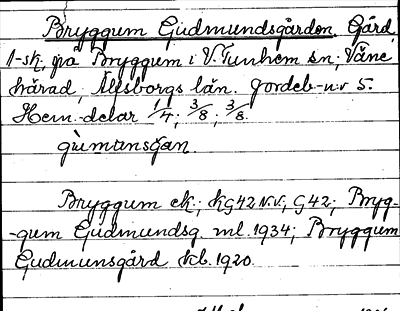 Bryggum Gudmundsgården, Gård,
1-sk, på Bryggum i V. Tunhem sn; Väne
härad, Älvsborgs län. Jordeb-n:r 5.
Hem.-delar 1/4; 3/8; 3/8.
gùmunsgan.
Bryggum ek; kG42 N.V., G42; Bryg-
-gum Gudmundsg. ml. 1934; Bryggum
Gudmunsgård kb. 1920.